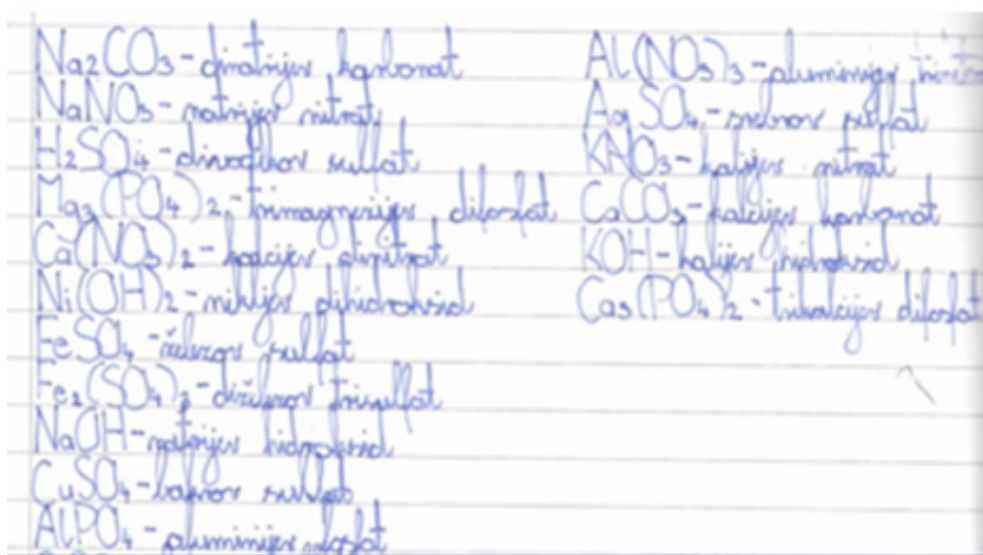 Na2CO3 - dinatrijev karbonat
NaNO3 - natrijev nitrat
H2SO4 - divodikov sulfat
Mg3(PO4)2 - trimagnezijev difosfat
Ca(NO3)2 - kalcijev dinitrat
Ni(OH)2 - nikljev dihidroksid
FeSO4 - železov sulfat
Fe2(SO4)3 - diželezov trisulfat
NaOH - natrijev hidroksid
CuSO4 - bakrov sulfat
AlPO4 - aluminijev fosfat
Al(NO3)3 - aluminijev
SO4 - srebrov sulfat
KNO3 - kalijev nitrat
CaCO3 - kalcijev karbonat
KOH - kalijev hidroksid
Ca3(PO4)2 - trikalcijev difosfat